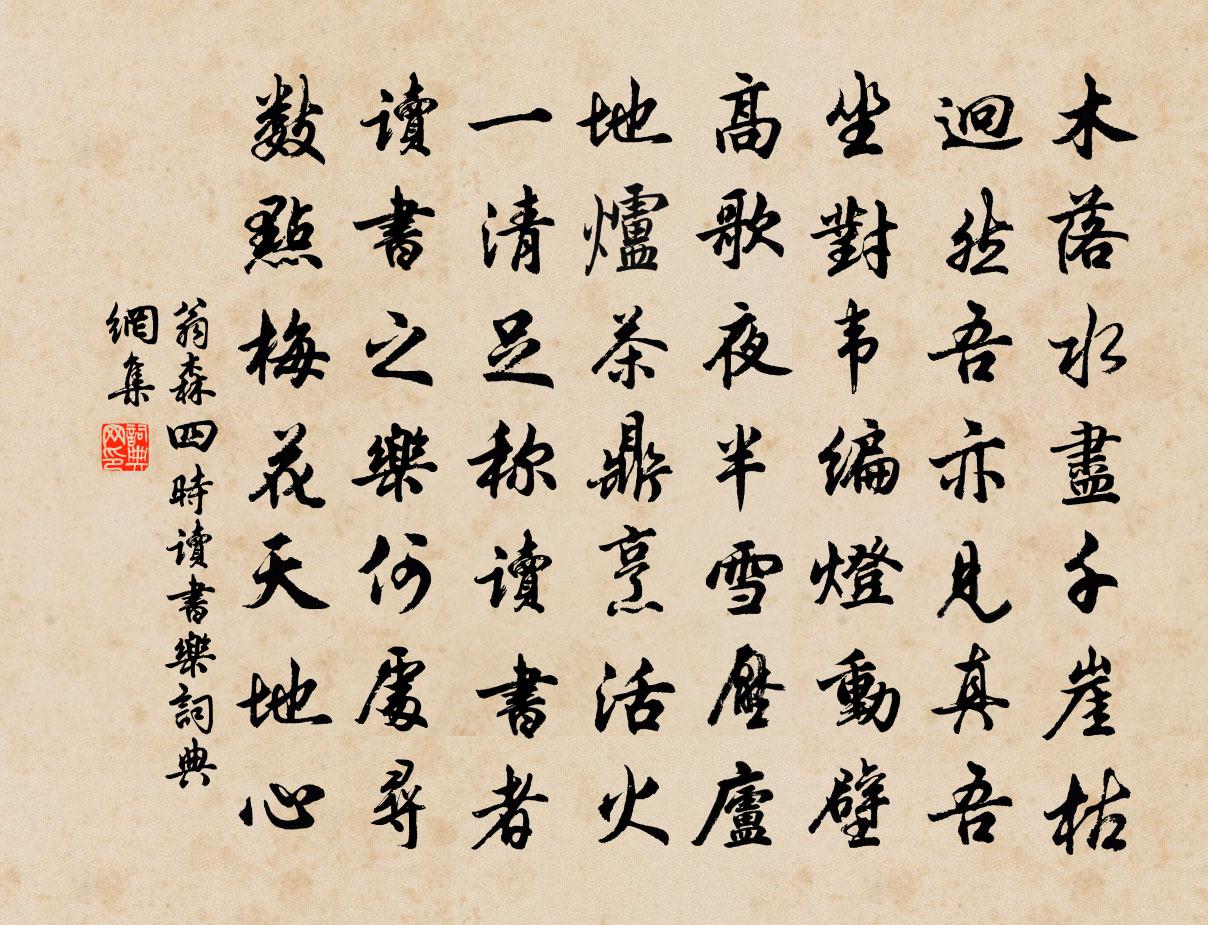 木落水盡千崖枯
迥然吾亦見真吾
坐對韦編燈動壁
高歌夜半雪壓廬
地爐茶鼎烹活火
一清足称讀書者
讀書之樂何處尋
數點梅花天地心
翁森四時讀書樂詞典
網集
詞典
网印